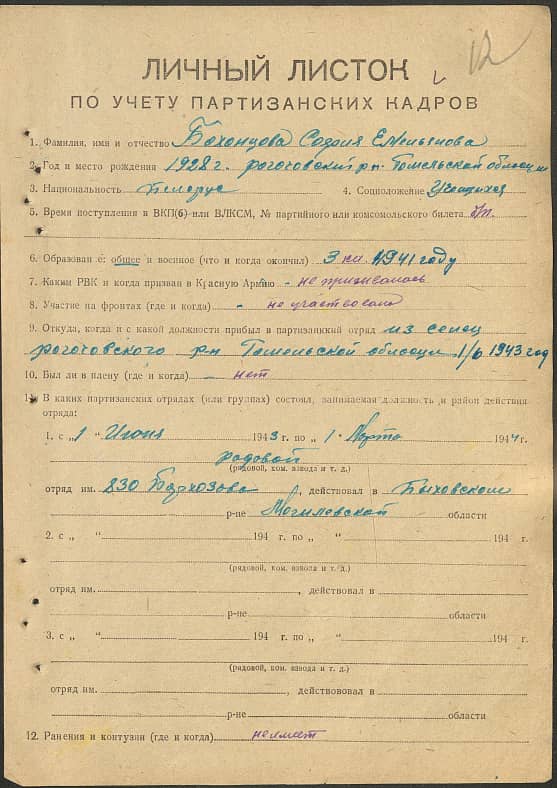 12
ЛИЧНЫЙ ЛИСТОК
ПО УЧЕТУ ПАРТИЗАНСКИХ КАДРОВ
1. Фамилия, имя и отчество Бахонцова София Емельянова
2. Год и место рождения 1928 г. рогочовский рн. Гомельской области
3. Национальность Белорус 4. Соцположение Учащихся
5. Время поступления в ВКП(б) или ВЛКСМ, № партийного или комсомольского билета
6. Образование: общее и военное (что и когда окончил) 3 кл. 1941 году
7. Каким РВК и когда призван в Красную Армию - не призивалась
8. Участие на фронтах (где и когда) - не участвовала
9. Откуда, когда и с какой должности прибыл в партизанский отряд из селец
рогочовского рн Гомельской области 1/6 1943 год
10. Был ли в плену (где и когда) - нет
11. В каких партизанских отрядах (или группах) состоял, занимаемая должность и район действия
отряда:
1. с „1“ Июня 1943 г. по „1. Марта 1944 г.
рядовой
(рядовой, ком. взвода и т. д.)
отряд им. 830 , действовал в Быховском
р-не Могилевской области
2. с „ “ 194 г. по „ “ 194 г.
(рядовой, ком. взвода и т. д.)
отряд им. , действовал в
р-не области
3. с „ “ 194 г. по „ “ 194 г.
(рядовой, ком. взвода и т. д.)
отряд им. , действововал в
р-не области
12. Ранения и контузии (где и когда) неимет